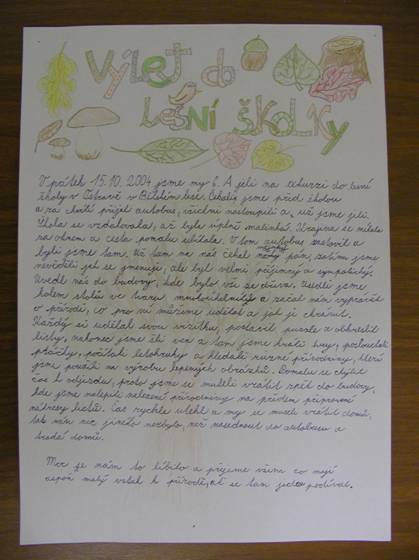 Výlet do
lesní školky
V pátek 15.10. 2004 jsme my 6. A jeli na exkurzi do lesní
školy v Ostravě v Bělském lese. Čekali jsme před školou
a za chvíli přijel autobus, všichni nastoupili a už jsme jeli.
Škola se vzdalovala, až byla úplně malinká. Krajina se míhala
za oknem a cesta pomalu ubíhala. V tom autobus zastavil a
byli jsme tam. Už tam na nás čekal nějaký pán, zatím jsme
nevěděli jak se jmenuje, ale byl velmi příjemný a sympatický.
Uvedl nás do budovy, kde bylo vše ze dřeva. Usedli jsme
kolem stolů ve tvaru mnohoúhelníků a začal nám vyprávět
o přírodě, co pro ni můžeme udělat a jak ji chránit.
Každý si udělal svou vizitku, poskládal puzzle z obkreslit
listy, nakonec jsme šli ven a tam jsme hráli hry, poslouchali
ptáčky, počítali letokruhy a hledali různé přírodniny, které
jsme použili na výrobu lepených obrázků. Pomalu se chýlil
čas k odjezdu, proto jsme se museli vrátit zpět do budovy,
kde jsme nalepili nalezené přírodniny na předem připravené
nákresy listů. Čas rychle utekl a my se museli vrátit domů,
tak nám nic jiného nezbylo, než nasednout do autobusu a
domů.
Moc se nám to líbilo a přejeme všem co mají
aspoň malý vztah k přírodě, ať se tam jedou podívat.